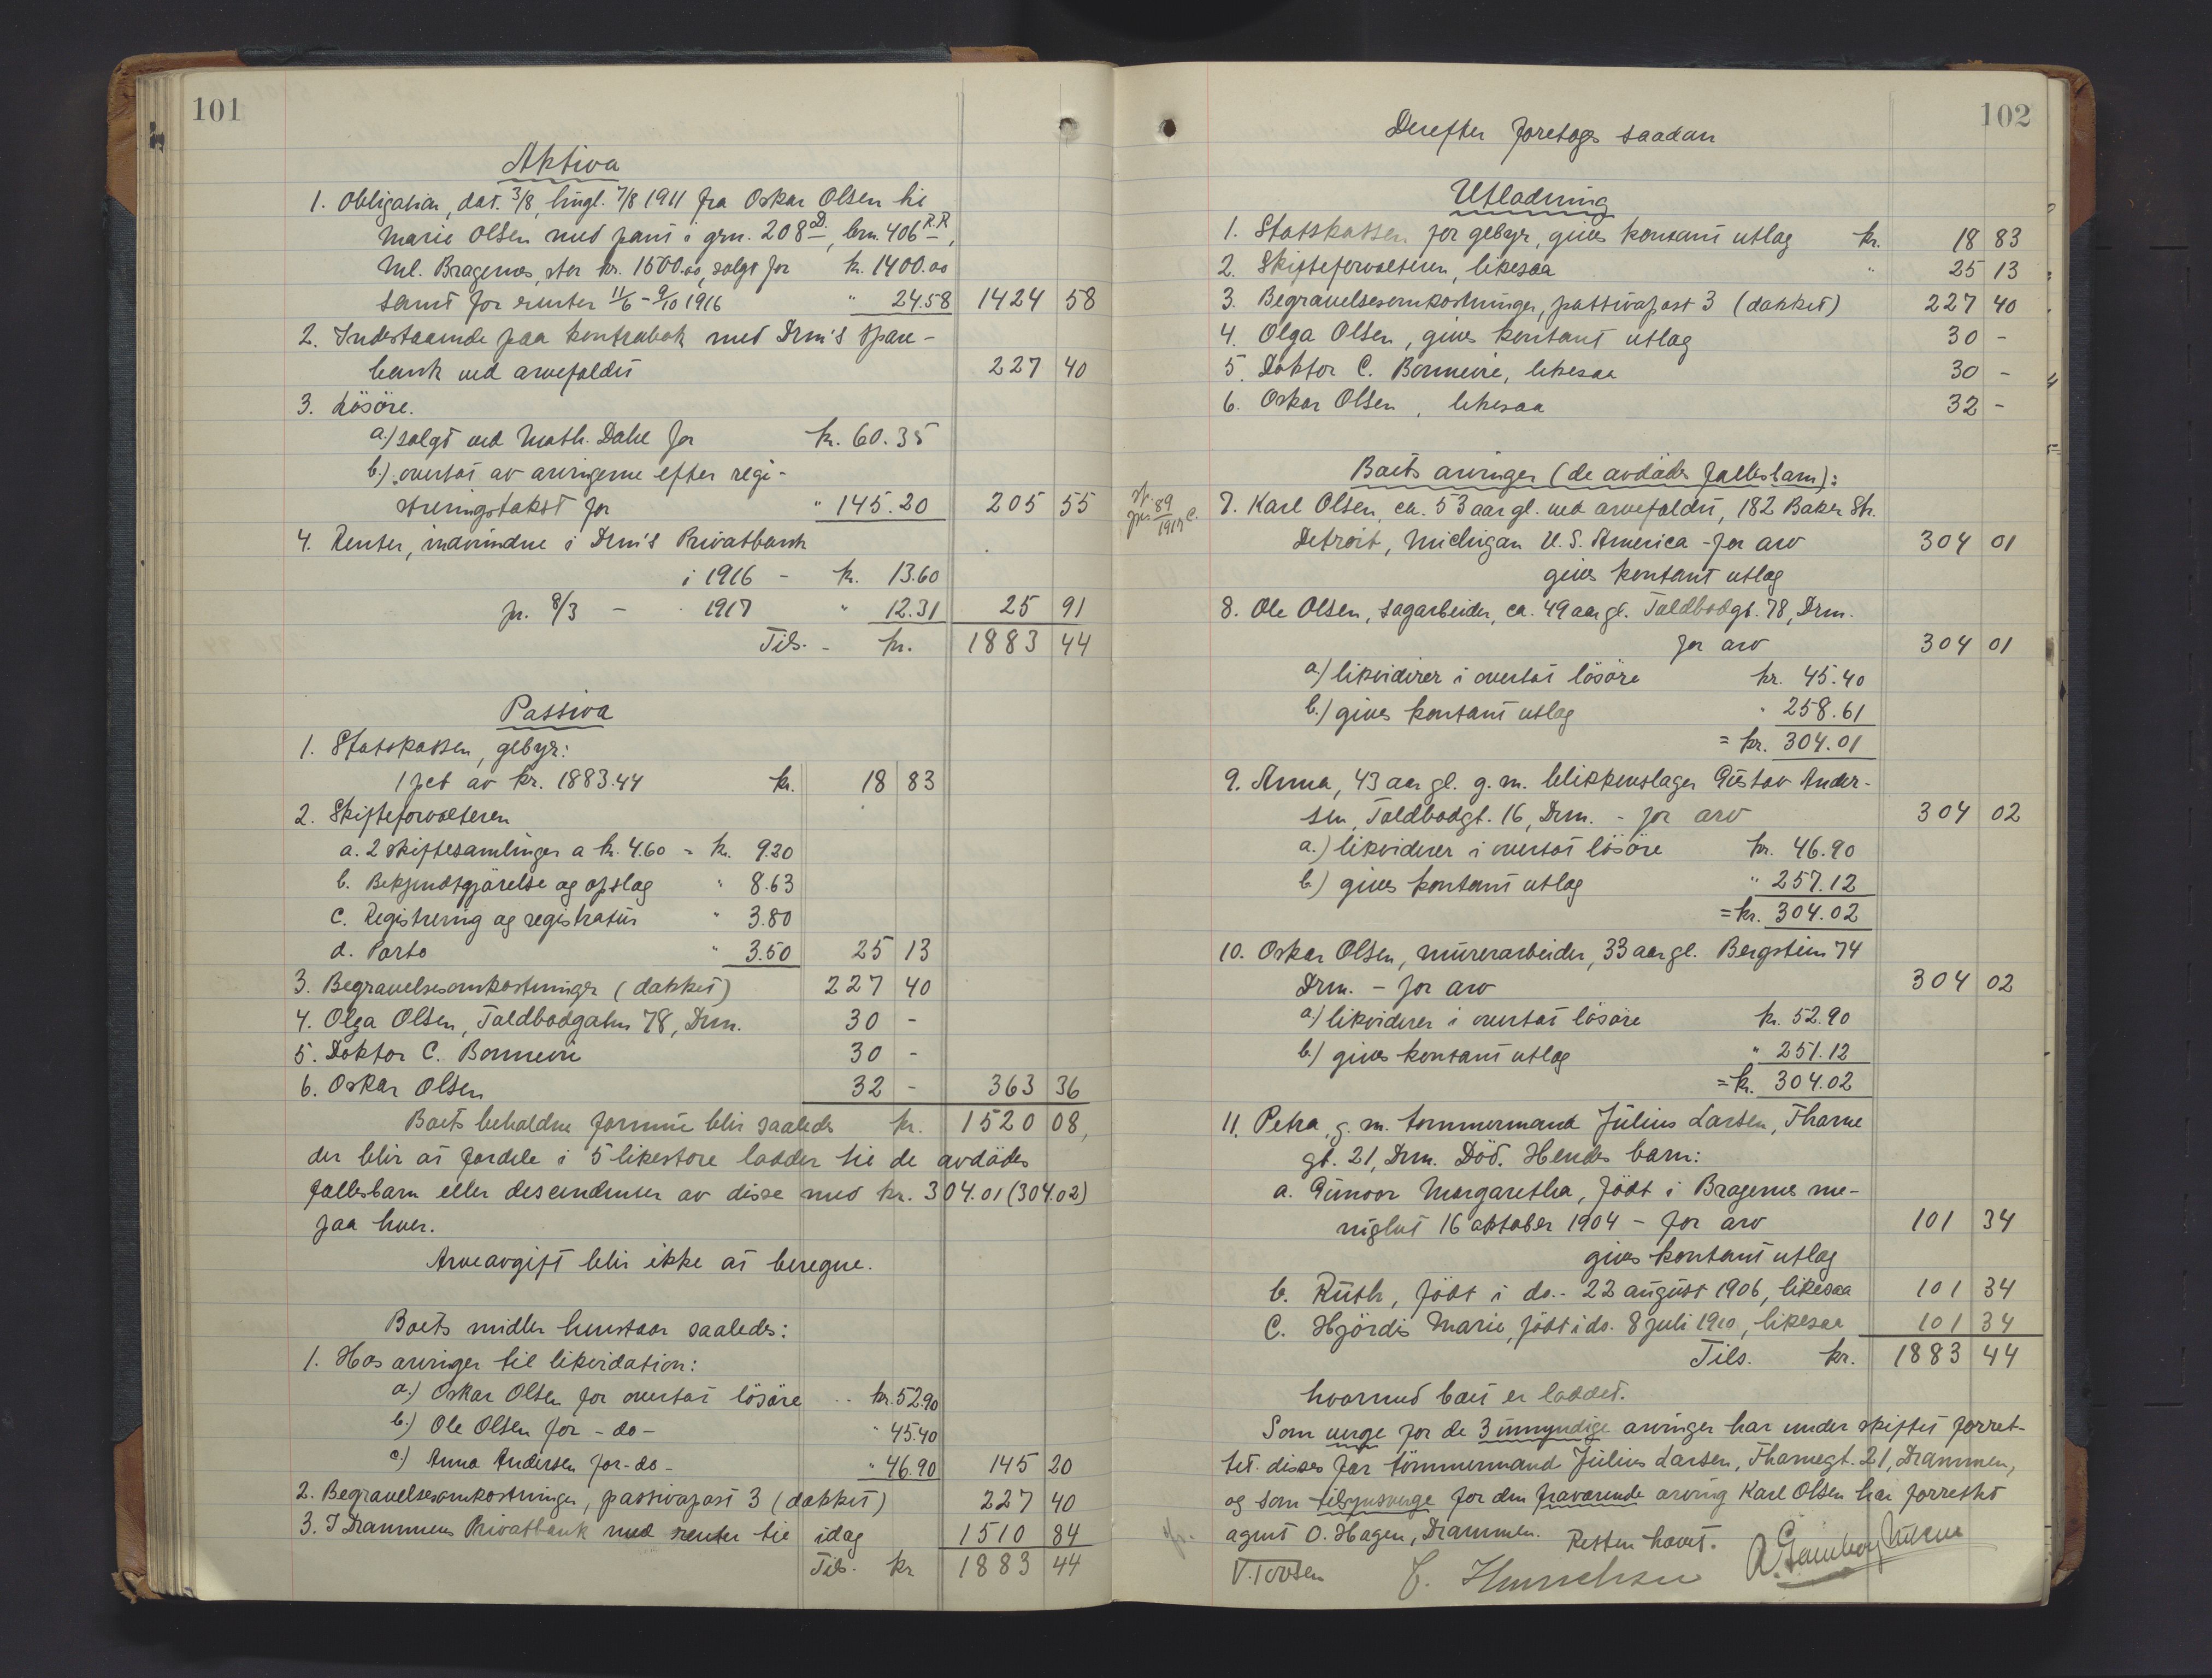 101
Aktiva
1. Obligation, dat. 3/8, tingl. 7/8 1911 fra Oskar Olsen til
Marie Olsen med pant i grn. 208 D., brn. 406 R.R,
ml. Bragernes, stor kr. 1500.00, solgt for kr. 1400.00
samt for renter 11/6 - 9/10 1916 " 24.58 1424 58
2. Indestaaende paa kontrabok med Drm's Spare-
bank ved arvefaldet 227 40
3. Løsøre.
a.) solgt ved Math. Dahl for kr. 60.35
b.) overtat av arvingerne efter regi-
streringstakst for " 145.20 205 55
4. Renter, indvundne i Drm's Privatbank
i 1916 - kr. 13.60
pr. 8/3 - 1917 " 12.31 25 91
Tils. - kr. 1883 44
Passiva
1. Statskassen, gebyr:
1 pct av kr. 1883.44 kr. 18 83
2. Skifteforvalteren
a. 2 skiftesamlinger a kr. 4.60 = kr. 9.20
b. Bekjendtgjørelse og opslag " 8.63
c. Registrering og registratur " 3.80
d. Porto " 3.50 25 13
3. Begravelsesomkostninger (dækket) 227 40
4. Olga Olsen, Toldbodgaten 78, Drm. 30 -
5. Doktor C. Bonnevie 30 -
6. Oskar Olsen 32 - 363 36
Boets beholdne formue blir saaledes kr. 1520 08,
der blir at fordele i 5 likestore lodder til de avdødes
fællesbarn eller descendenter av disse med kr. 304.01 (304.02)
paa hver.
Arveavgift blir ikke at beregne.
Boets midler henstaar saaledes:
1. Hos arvinger til likvidation:
a.) Oskar Olsen for overtat løsøre .. kr. 52.90
b.) Ole Olsen for - do - " 45.40
c.) Anna Andersen for - do - " 46.90 145 20
2. Begravelsesomkostninger, passivapost 3 (dækket) 227 40
3. I Drammens Privatbank med renter til idag 1510 84
Tils. kr 1883 44
102
Derefter foretoges saadan
Utlodning
1. Statskassen for gebyr, gives kontant utlæg kr. 18 83
2. Skifteforvalteren, likesaa " 25 13
3. Begravelsesomkostninger, passivapost 3 (dækket) 227 40
4. Olga Olsen, gives kontant utlæg 30 -
5. Doktor C. Bonnevie, likesaa 30 -
6. Oskar Olsen, likesaa 32 -
Boets arvinger (de avdødes fællesbarn):
89
1917
7. Karl Olsen, ca. 53 aar gl. ved arvefaldet, 182 Baker Str.
Detroit, Michigan U. S. America - for arv 304 01
gives kontant utlæg
8. Ole Olsen, sagarbeider, ca. 49 aar gl. Toldbodgt. 78, Drm.
for arv 304 01
a.) likviderer i overtat løsøre kr. 45.40
b.) gives kontant utlæg " 258.61
= kr. 304.01
9. Anna, 43 aar gl. g. m. blikkenslager Gustav Ander-
sen, Toldbodgt. 16, Drm. - for arv 304 02
a.) likviderer i overtat løsøre kr. 46.90
b.) gives kontant utlæg " 257.12
= kr. 304.02
10. Oskar Olsen, murerarbeider, 33 aar gl. Bergstien 74
Drm. - for arv 304 02
a.) likviderer i overtat løsøre kr. 52.90
b.) gives kontant utlæg " 251.12
= kr. 304.02
11. Petra, g. m. tømmermand Julius Larsen, Thorne
gt. 21, Drm. Død. Hendes barn:
a. Gunvor Margaretha, født i Bragernes me-
nighet 16 oktober 1904 - for arv 101 34
gives kontant utlæg
b. Ruth, født i do. - 22 august 1906, likesaa 101 34
c. Hjørdis Marie, født i do. 8 juli 1910, likesaa 101 34
Tils. kr. 1883 44
hvormed boet er loddet.
Som verge for de 3 umyndige arvinger har under skiftet forret-
tet disses far tømmermand Julius Larsen, Thornegt. 21, Drammen,
og som tilsynsverge for den fraværende arving Karl Olsen har forrettet
agent O. Hagen, Drammen. Retten hævet.